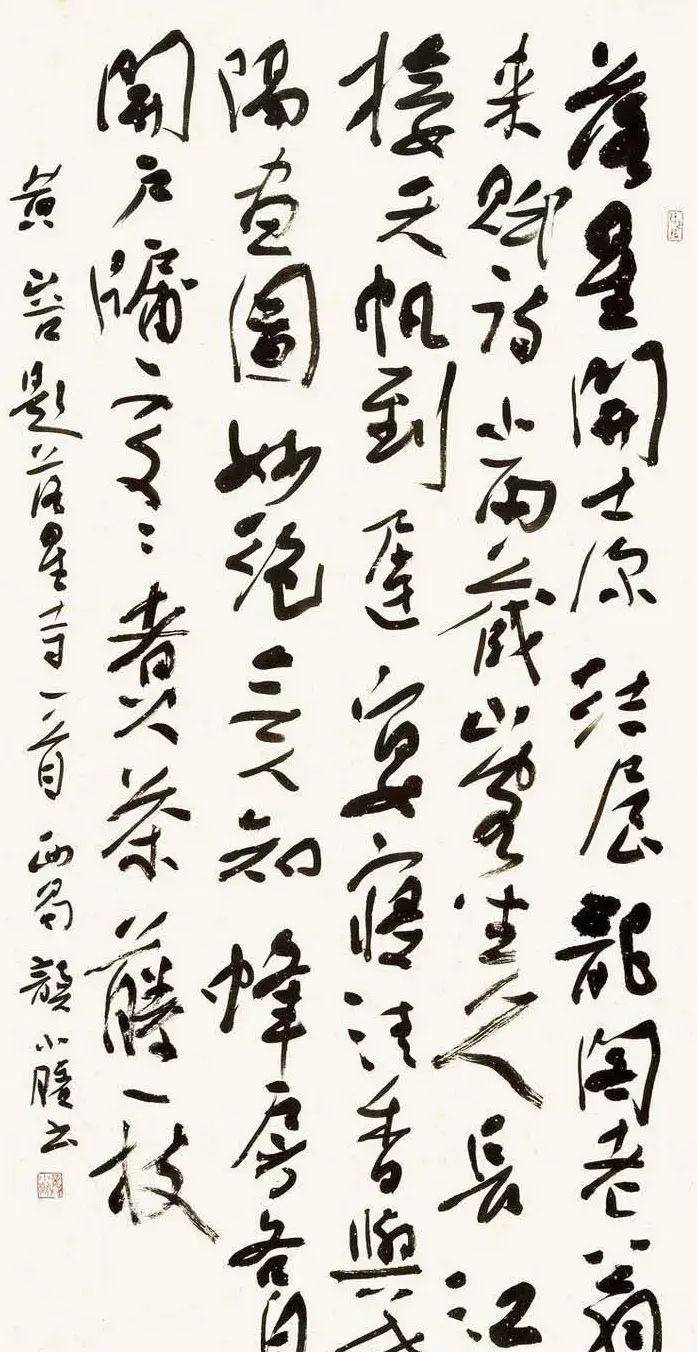 落星開士深結屋龍閣老翁
来賦詩小雨藏山客坐久長江
接天帆到遲宴寢清香與世
隔畫圖妙絕无人知蜂房各自
開戶牖處々煮茶藤一枝
黄山谷題落星寺一首 西蜀 小 书